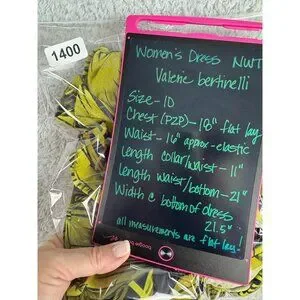 1400
Women's Dress NWT
Valerie bertinelli
Size - 10
Chest (P2P) - 18" flat lay
Waist - 16" approx - elastic
Length collar/waist - 11"
Length waist/bottom - 21"
Width @ bottom of dress
21.5"
all measurements are flat lay!
boogie board